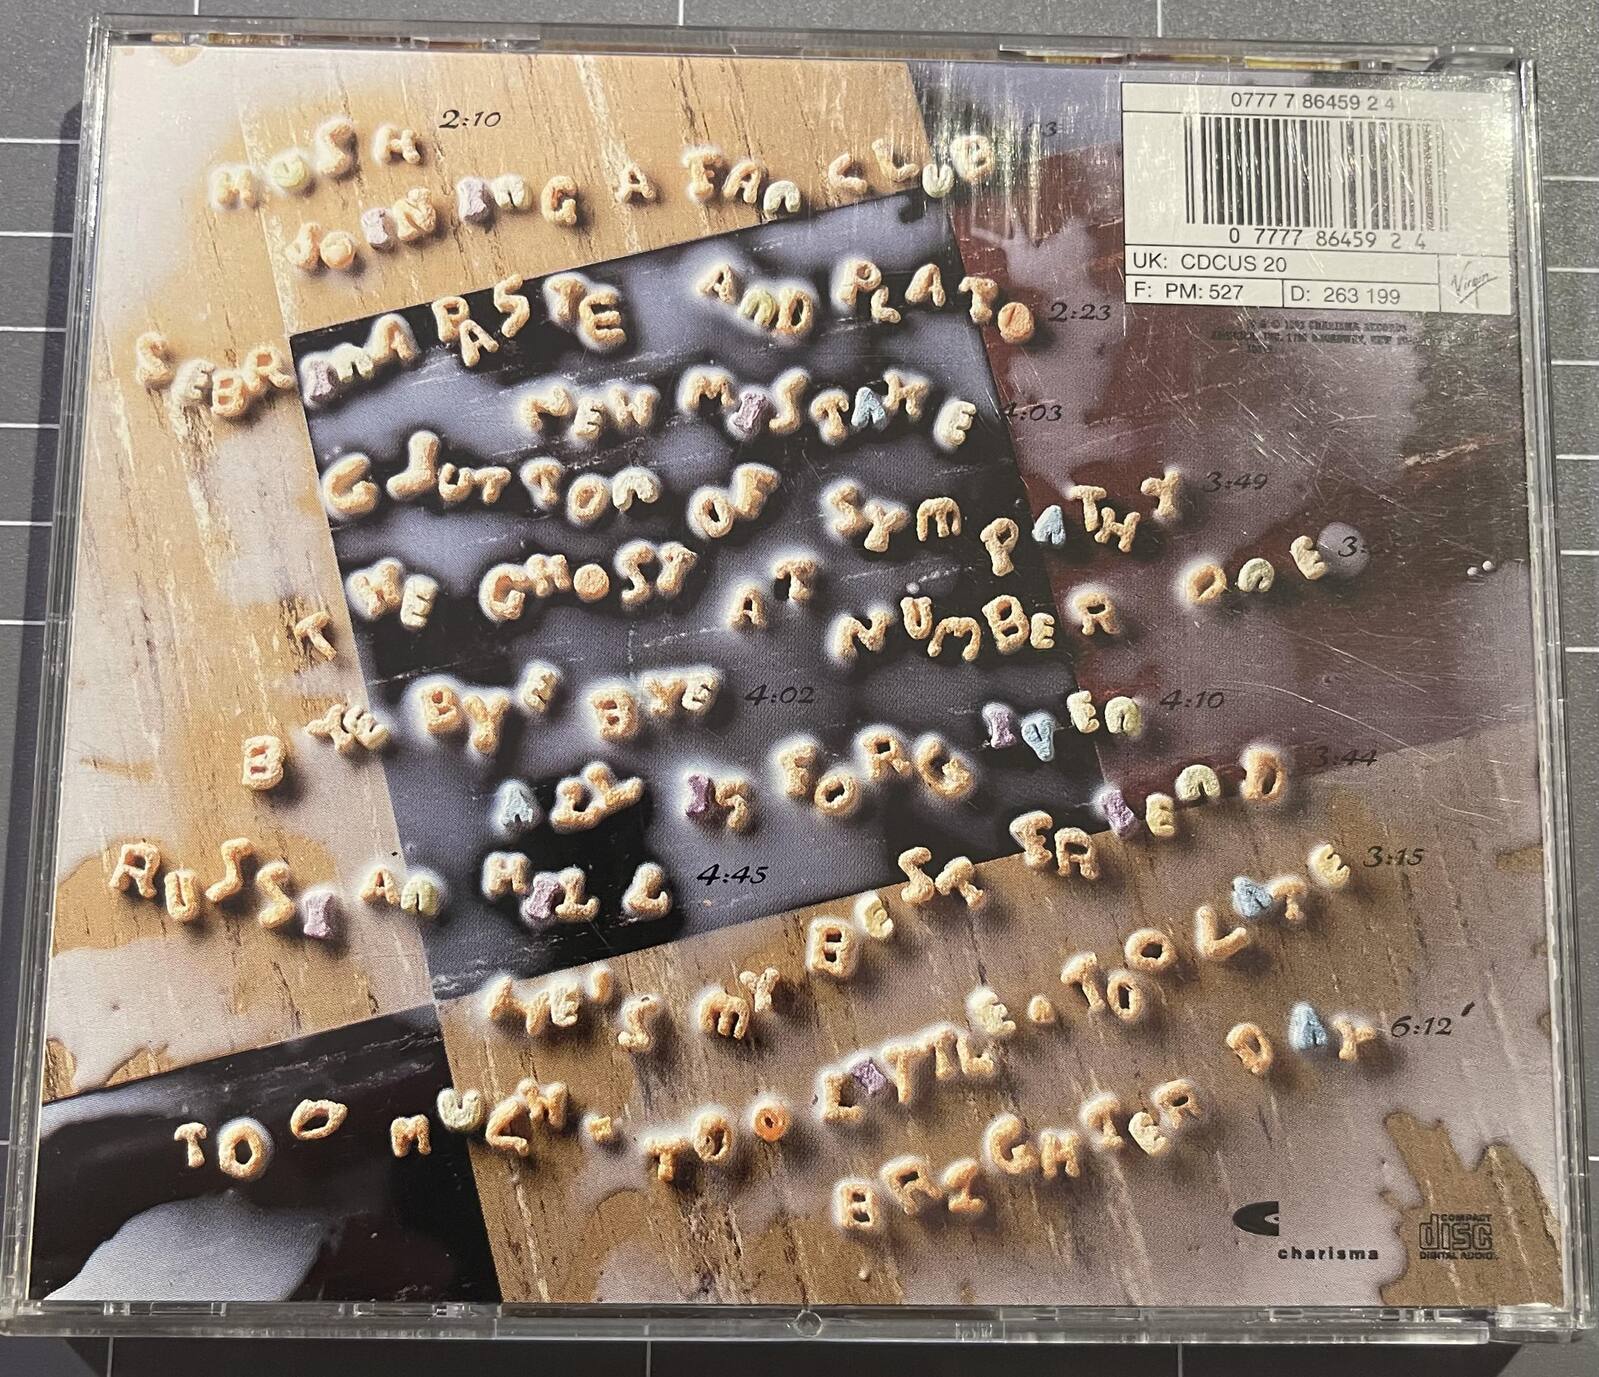 HUSH 2:10
JOINING A FAN CLUB
SEBRINA PASTE AND PLATO 2:23
NEW MISTAKE 4:03
GLUTTON OF SYMPATHY 3:49
THE GHOST AT NUMBER ONE
BYE BYE BYE 4:02
ALL IS FORGIVEN 4:10
RUSSIAN HILL 4:45
HE'S MY BEST FRIEND 3:44
TOO MUCH - TOO LITTLE - TOO LATE 3:15
BRIGHTER DAY 6:12
0777 7 86459 2 4
0 7777 86459 2 4
UK: CDCUS 20
F: PM: 527
D: 263 199
Virgin
℗ & © 1993 CHARISMA RECORDS
charisma
COMPACT
disc
DIGITAL AUDIO